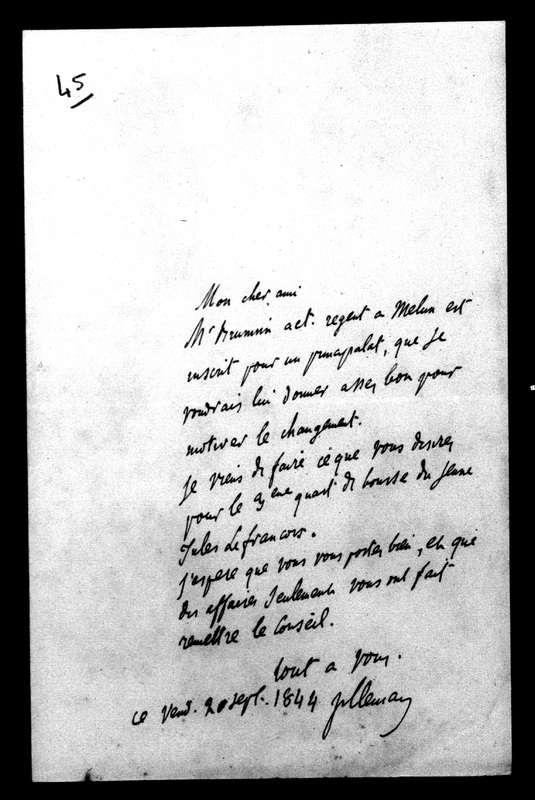 45
Mon cher ami
Mr act. regent a Melun est
inscrit pour un principalat, que je
voudrais lui donner assez bon pour
motiver le changement.
Je viens de faire ce que vous desirez
pour le 3eme quart de bourse du jeune
Jules Lefrancois.
J'espere que vous vous portez bien, et que
des affaires seulement vous ont fait
remettre le Conseil.
tout a vous.
ce vend. 20 sept. 1844 Villemain